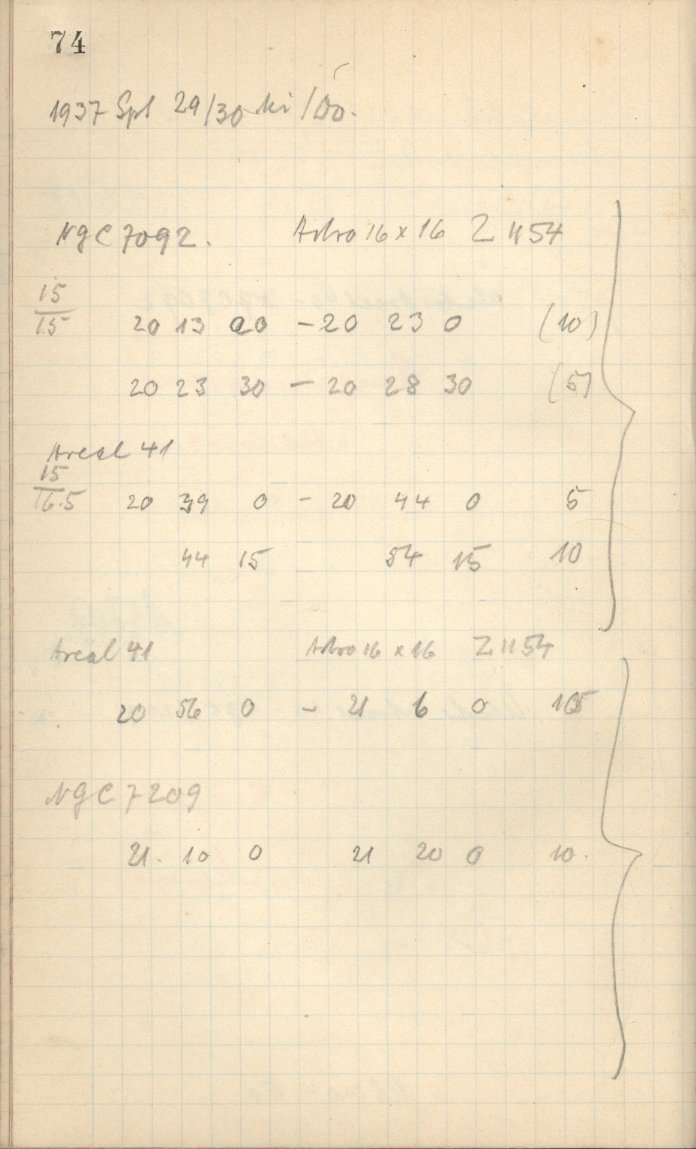 74
1937 Spt 29/30 Ki/Do.
NgC 7092. Astro 16 x 16 Z 1154
15/15 20 13 00 – 20 23 0 (10)
20 23 30 – 20 28 30 (5)
Areal 41
15/16.5 20 39 0 – 20 44 0 5
44 15 54 15 10
Areal 41 Astro 16 x 16 Z 1154
20 56 0 – 21 6 0 10
NgC 7209
21. 10 0 21 20 0 10.